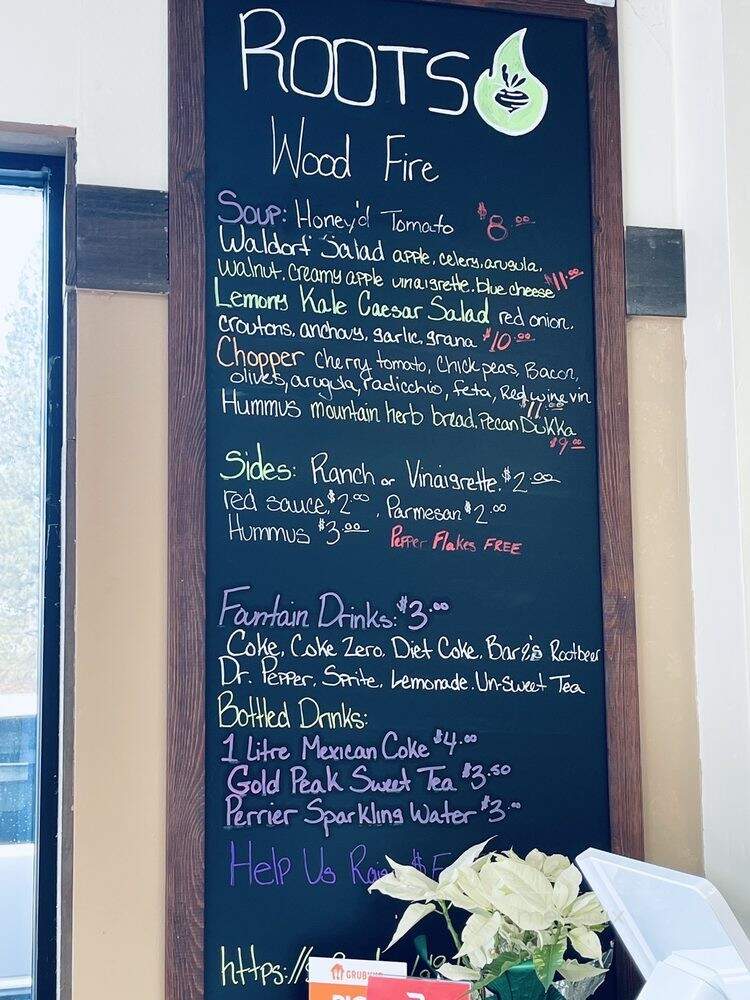 ROOTS
Wood Fire
Soup: Honey'd Tomato $8.00
Waldorf Salad apple, celery, arugula,
walnut, creamy apple vinaigrette, blue cheese $11.00
Lemony Kale Caesar Salad red onion,
croutons, anchovy, garlic, grana $10.00
Chopper Cherry tomato, Chickpeas, Bacon,
olives, arugula, radicchio, feta, Red wine vin
$11.00
Hummus mountain herb bread, Pecan Dukka
$9.00
Sides: Ranch or Vinaigrette $2.00
red sauce $2.00, Parmesan $2.00
Hummus $3.00 Pepper Flakes FREE
Fountain Drinks: $3.00
Coke, Coke Zero, Diet Coke, Barq's Rootbeer
Dr. Pepper, Sprite, Lemonade, Un-Sweet Tea
Bottled Drinks:
1 Litre Mexican Coke $4.00
Gold Peak Sweet Tea $3.50
Perrier Sparkling Water $3.00
Help Us
https://
GRUBHUB